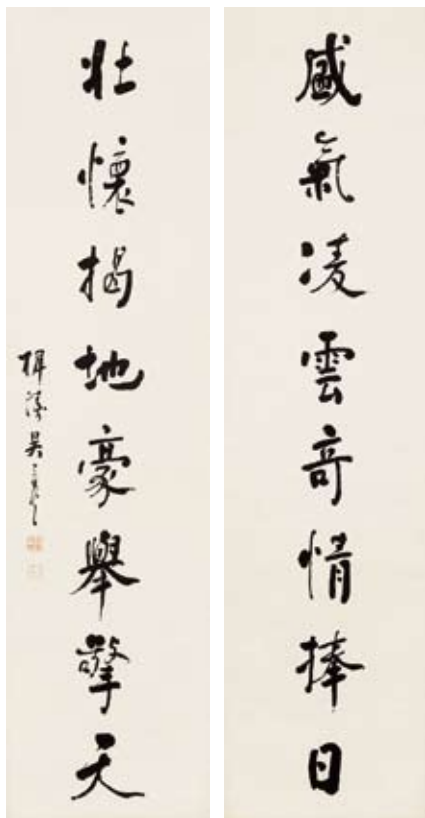 盛氣凌雲奇情捧日
壯懷揭地豪舉擎天
吳